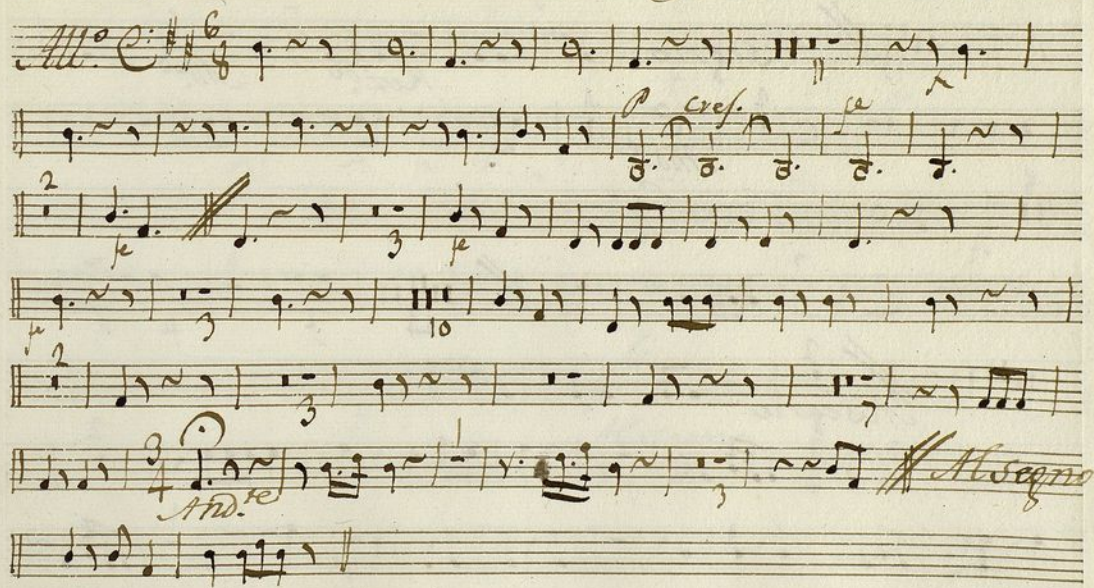 All.o 6 8 11
P cres. fe
2 fe 3 fe
fe 3 10
2 3 7
3 4 And.te 1 3 Al segno